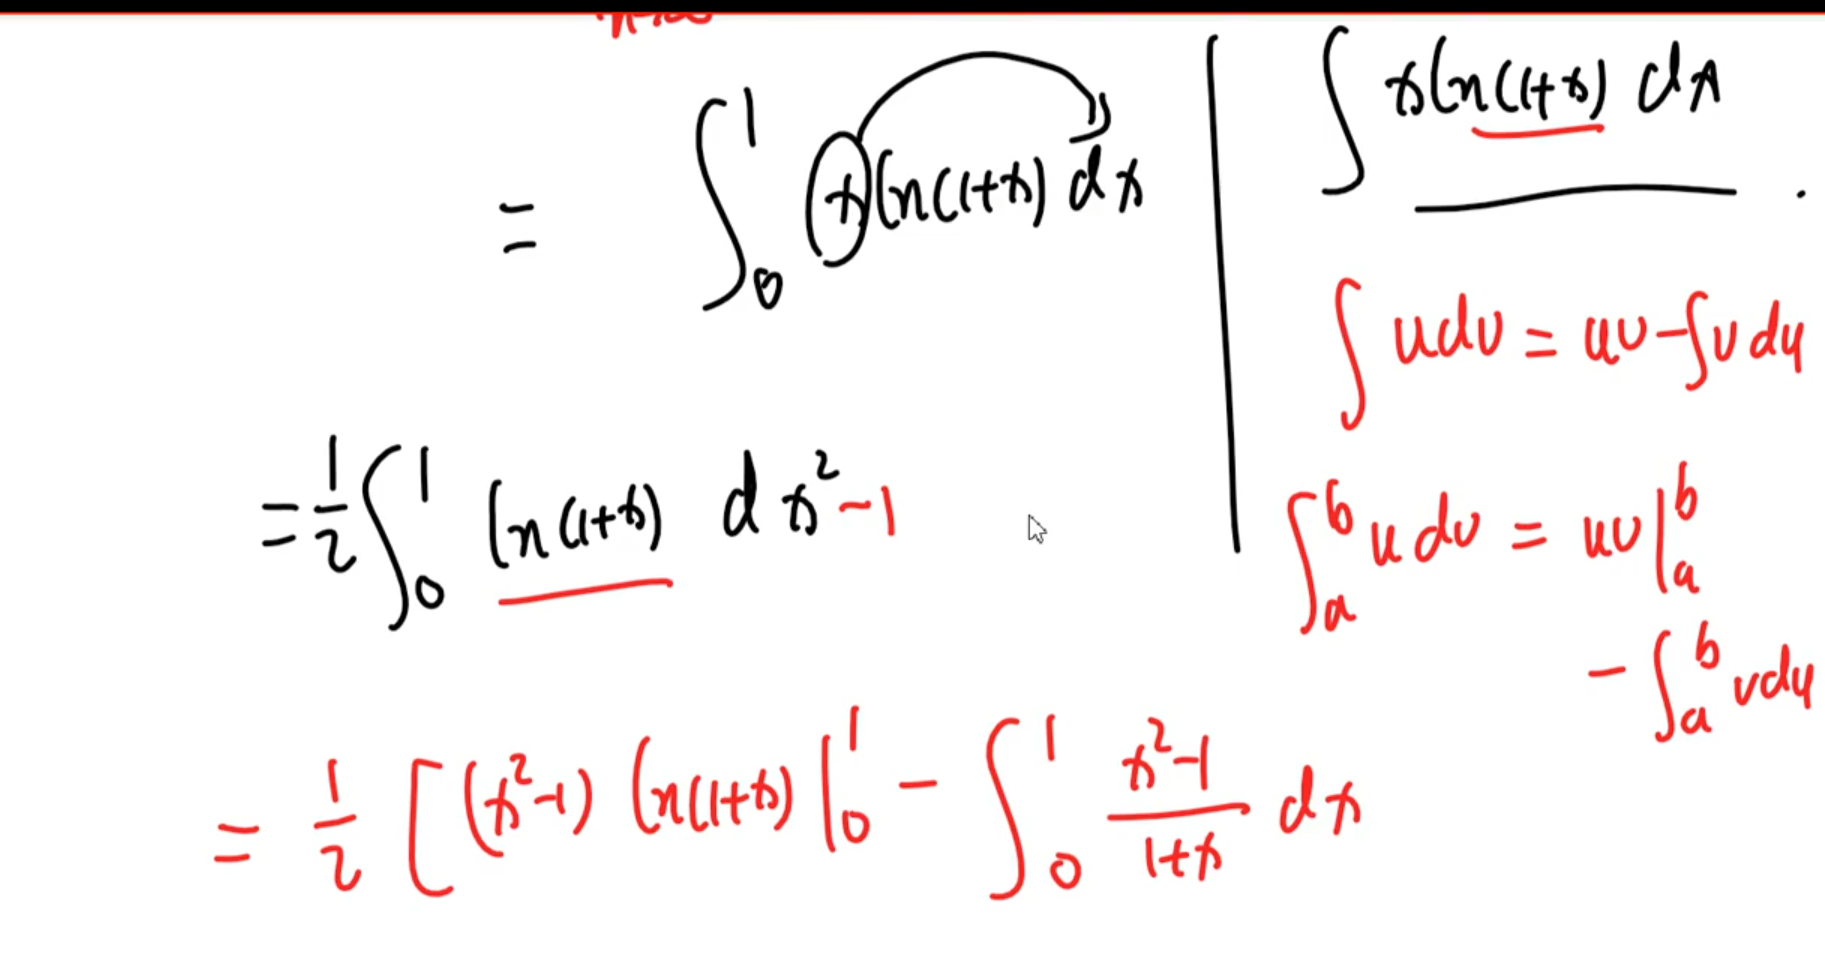 = ∫₀¹ x ln(1+x) dx
= 1/2 ∫₀¹ ln(1+x) d x² - 1
= 1/2 [ (x²-1) ln(1+x) |₀¹ - ∫₀¹ (x²-1)/(1+x) dx
∫ x ln(1+x) dx .
∫ u dv = uv - ∫ v du
∫ₐᵇ u dv = uv |ₐᵇ
- ∫ₐᵇ v du